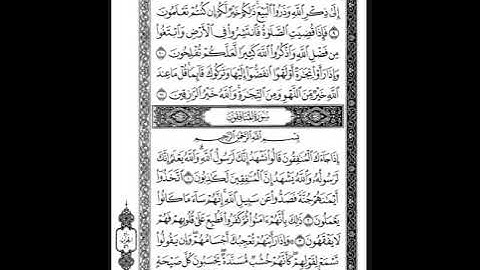 إِلَىٰ ذِكْرِ ٱللَّهِ وَذَرُوا۟ ٱلْبَيْعَ ذَٰلِكُمْ خَيْرٌ لَّكُمْ إِن كُنتُمْ تَعْلَمُونَ
٩ فَإِذَا قُضِيَتِ ٱلصَّلَوٰةُ فَٱنتَشِرُوا۟ فِى ٱلْأَرْضِ وَٱبْتَغُوا۟
مِن فَضْلِ ٱللَّهِ وَٱذْكُرُوا۟ ٱللَّهَ كَثِيرًا لَّعَلَّكُمْ تُفْلِحُونَ ١٠
وَإِذَا رَأَوْا۟ تِجَٰرَةً أَوْ لَهْوًا ٱنفَضُّوٓا۟ إِلَيْهَا وَتَرَكُوكَ قَآئِمًا قُلْ مَا عِندَ
ٱللَّهِ خَيْرٌ مِّنَ ٱللَّهْوِ وَمِنَ ٱلتِّجَٰرَةِ وَٱللَّهُ خَيْرُ ٱلرَّٰزِقِينَ ١١
سُورَةُ ٱلْمُنَافِقُونَ
بِسْمِ ٱللَّهِ ٱلرَّحْمَٰنِ ٱلرَّحِيمِ
إِذَا جَآءَكَ ٱلْمُنَٰفِقُونَ قَالُوا۟ نَشْهَدُ إِنَّكَ لَرَسُولُ ٱللَّهِ وَٱللَّهُ يَعْلَمُ إِنَّكَ
لَرَسُولُهُۥ وَٱللَّهُ يَشْهَدُ إِنَّ ٱلْمُنَٰفِقِينَ لَكَٰذِبُونَ ١ ٱتَّخَذُوٓا۟
أَيْمَٰنَهُمْ جُنَّةً فَصَدُّوا۟ عَن سَبِيلِ ٱللَّهِ إِنَّهُمْ سَآءَ مَا كَانُوا۟
يَعْمَلُونَ ٢ ذَٰلِكَ بِأَنَّهُمْ ءَامَنُوا۟ ثُمَّ كَفَرُوا۟ فَطُبِعَ عَلَىٰ قُلُوبِهِمْ فَهُمْ
لَا يَفْقَهُونَ ٣ وَإِذَا رَأَيْتَهُمْ تُعْجِبُكَ أَجْسَامُهُمْ وَإِن يَقُولُوا۟
تَسْمَعْ لِقَوْلِهِمْ كَأَنَّهُمْ خُشُبٌ مُّسَنَّدَةٌ يَحْسَبُونَ كُلَّ صَيْحَةٍ